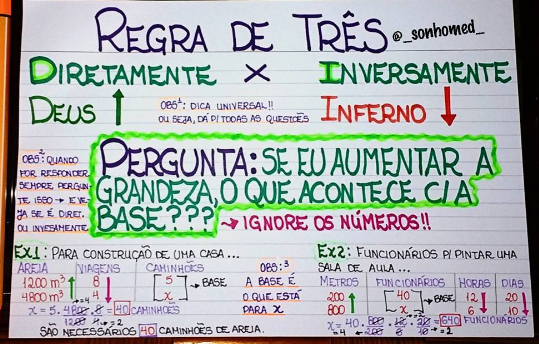 REGRA DE TRÊS @_sonhomed_
DIRETAMENTE X INVERSAMENTE
DEUS ↑ OBS¹: DICA UNIVERSAL!! INFERNO ↓
OU SEJA, DÁ P/ TODAS AS QUESTÕES
OBS²: QUANDO
FOR RESPONDER,
SEMPRE PERGUN-
TE ISSO → E VE-
JA SE É DIRET.
OU INVESAMENTE
PERGUNTA: SE EU AUMENTAR A
GRANDEZA, O QUE ACONTECE C/ A
BASE???
→ IGNORE OS NÚMEROS!!
EX1: PARA CONSTRUÇÃO DE UMA CASA...
AREIA VIAGENS CAMINHÕES
1200 m³ ↑ 8 ↓ 5 → BASE
4800 m³ 4 x
x = 5 . 4800 . 8 = 40 CAMINHÕES
1200 4
SÃO NECESSÁRIOS 40 CAMINHÕES DE AREIA.
OBS:³
A BASE É
O QUE ESTÁ
PARA X
EX2: FUNCIONÁRIOS P/ PINTAR UMA
SALA DE AULA...
METROS FUNCIONÁRIOS HORAS DIAS
200 ↑ 40 → BASE 12 ↓ 20 ↓
800 x 6 10
x = 40 . 800 . 12 . 20 = 640 FUNCIONÁRIOS
200 6 10